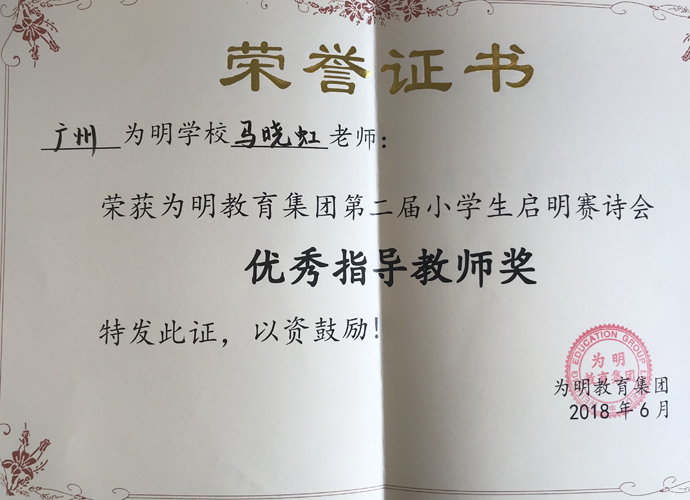 荣誉证书
广州 为明学校 马晓虹 老师:
荣获为明教育集团第二届小学生启明赛诗会
优秀指导教师奖
特发此证，以资鼓励！
为明
教育集团
EDUCATION GROUP
为明教育集团
2018年6月